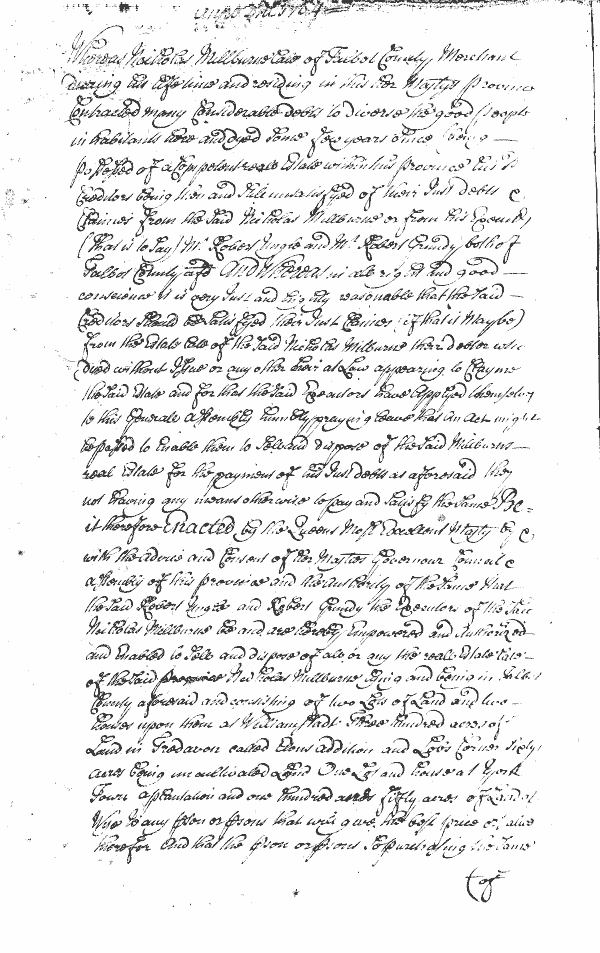 Whereas Nicholas Millburne late of Talbot County Merchant
dureing his life time and resideing in this her Majtys Province
Contracted many Considerable debts to diverse the good people
inhabitants here and dyed some few years since being
possessed of a Competent reale Estate within this province his
Creditors being then and still unsatisfyed of their Just debts &
Claimes from the said Nicholas Millburne or from his Execut
(that is to say) Mr. Robert Ungle and Mr. Robert Grundy both of
Talbot County afd And Whereas in all right and good
conscience it is very Just and highly reasonable that the said
Creditors should be satisfyed their Just Claimes (if that it may be)
from the Estate late of the said Nicholas Millburne their debtor who
dyed without Issue or any other heir at Law appearing to Clayme
the said Estate and for that the said Executors have applyed themselves
to this Generall assembly humbly praying leave that an Act might
be passed to Enable them to sell and dispose of the said Milburns
real Estate for the payment of his Just debts as aforesaid they
not having any means otherwise to pay and satisfy the same Be
it therefore Enacted by the Queens Most Excellent Majty by &
with the advice and Consent of her Majtys Governour Councill &
assembly of this province and the authority of the same that
the said Robert Ungle and Robert Grundy the Executors of the said
Nicholas Millburne be and are hereby Empowered and Authorized
and Enabled to sell and dispose of all or any the reall Estate late
of the said Nicholas Millburne lying and being in Talbot
County aforesaid and consisting of two Lots of Land and two
houses upon them at William Stadt three hundred acres of
Land in Tredavon called addition and Corner sixty
acres being uncultivated Land One Lot and house at York
Town a plantation and one hundred acres fifty acres of Land at
Wye to any pson or psons that will give the best price or value
therefor And that the pson or psons so purchasing the same
of